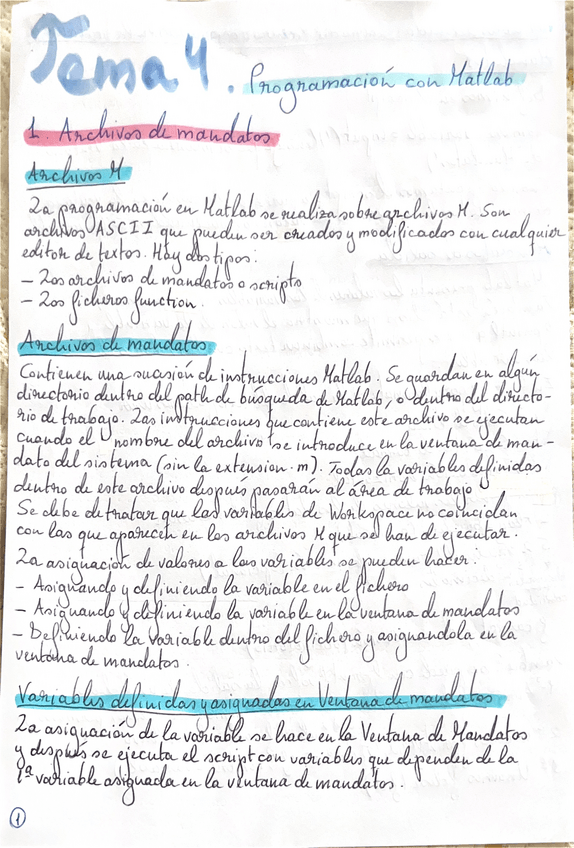 Tema 4. Programación con Matlab
1. Archivos de mandatos
Archivos M
La programación en Matlab se realiza sobre archivos M. Son
archivos ASCII que pueden ser creados y modificados con cualquier
editor de textos. Hay dos tipos:
- Los archivos de mandatos o scripts
- Los ficheros function.
Archivos de mandatos
Contienen una sucesión de instrucciones Matlab. Se guardan en algún
directorio dentro del path de búsqueda de Matlab, o dentro del directo-
rio de trabajo. Las instrucciones que contiene este archivo se ejecutan
cuando el nombre del archivo se introduce en la ventana de man-
dato del sistema (sin la extension .m). Todas la variables definidas
dentro de este archivo después pasarán al área de trabajo
Se debe de tratar que las variables de Workspace no coincidan
con las que aparecen en los archivos M que se han de ejecutar.
La asignación de valores a las variables se pueden hacer:
- Asignando y definiendo la variable en el fichero
- Asignando y definiendo la variable en la ventana de mandatos
- Definiendo la variable dentro del fichero y asignandola en la
ventana de mandatos.
Variables definidas y asignadas en Ventana de mandatos
La asignación de la variable se hace en la Ventana de Mandatos
y después se ejecuta el script con variables que dependen de la
1ª variable asignada en la ventana de mandatos.
1